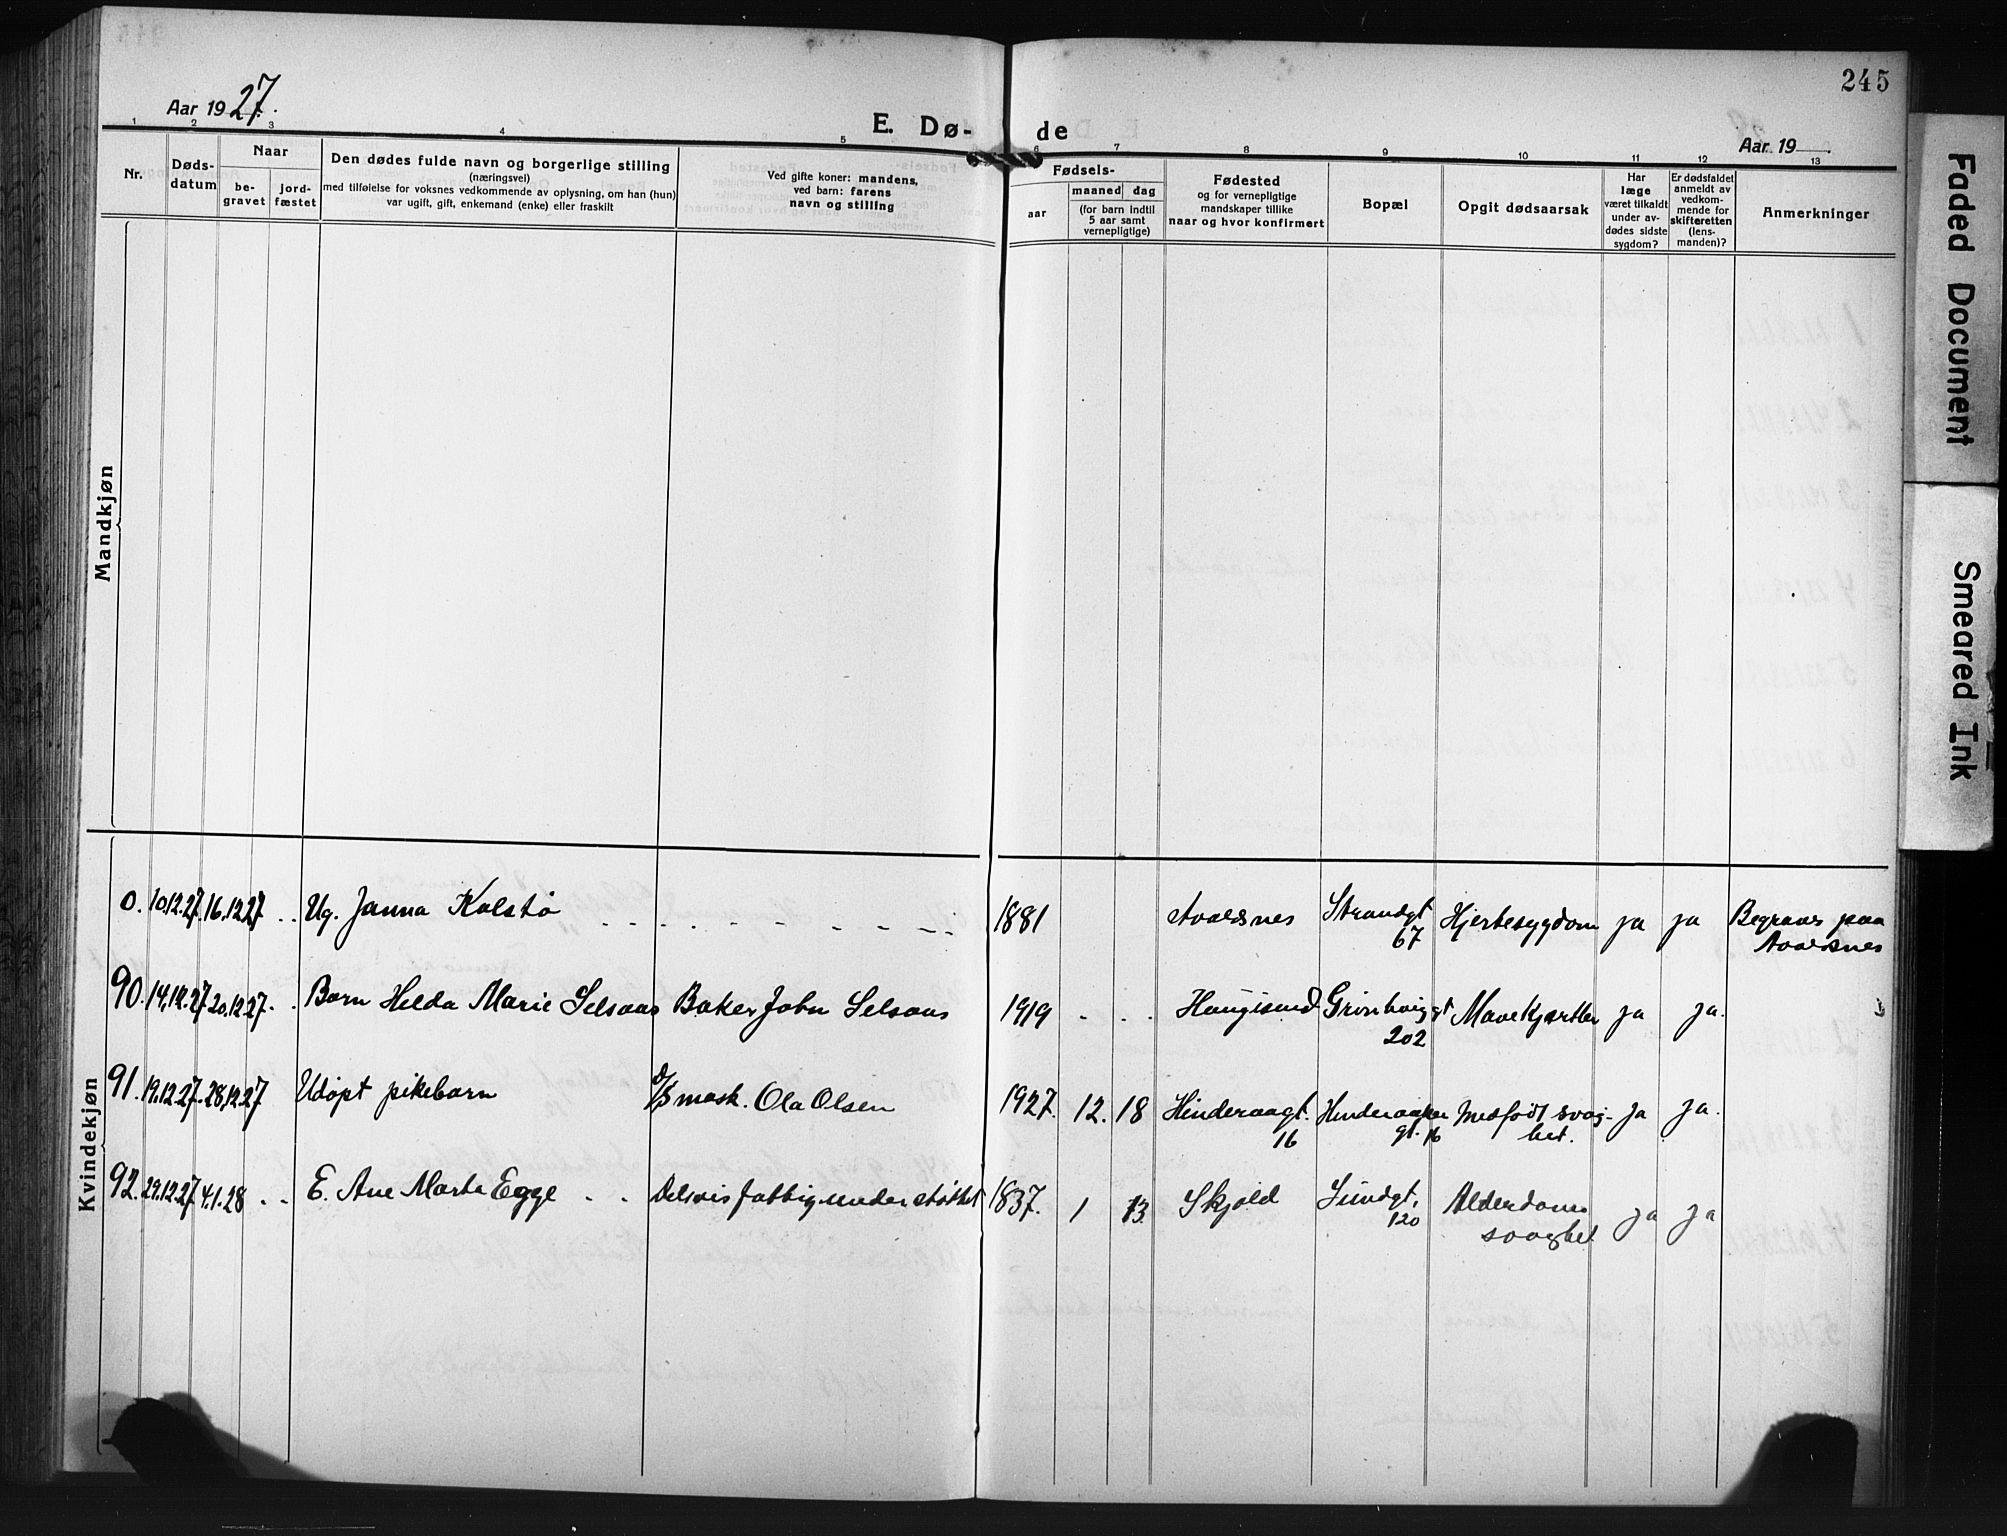 245
Aar 1927.
E. Dø-
de
Aar 19
1 2 3 4 5 6 7 8 9 10 11 12 13
Nr.
Døds-
datum
Naar
be-
gravet
jord-
fæstet
Den dødes fulde navn og borgerlige stilling
(næringsvei)
med tilføielse for voksnes vedkommende av oplysning, om han (hun)
var ugift, gift, enkemand (enke) eller fraskilt
Ved gifte koner: mandens,
ved barn: farens
navn og stilling
Fødsels-
aar
maaned dag
(for barn indtil
5 aar samt
vernepligtige)
Fødested
og for vernepligtige
mandskaper tillike
naar og hvor konfirmert
Bopæl
Opgit dødsaarsak
Har
læge
været tilkaldt
under av-
dødes sidste
sygdom?
Er dødsfaldet
anmeldt av
vedkom-
mende for
skifteretten
(lens-
manden)?
Anmerkninger
Mandkjøn
Kvindekjøn
0. 10.12.27. 16.12.27 Ug. Janna Kolstø 1881 Avaldsnes Strandgt 67 Hjertesygdom ja ja Begraves paa
Avaldsnes
90. 14.12.27 20.12.27. Barn Helda Marie Selsaas Baker John Selsaas 1919 Haugesund 202 Mavekjertler ja ja.
91. 19.12.27. 28.12.27 Udøpt pikebarn d/s mask. Ola Olsen 1927. 12. 18 Hinderaagt. 16 Hinderaaker
gt. 16 Medfødt svag-
het. ja ja.
92. 29.12.27 4.1.28 E. Ane Marta Egge Delvis fattigunderstøttet 1837. 1 13 Skjold Sundgt. 120 Alderdoms
svaghet ja ja
Faded Document
Smeared Ink